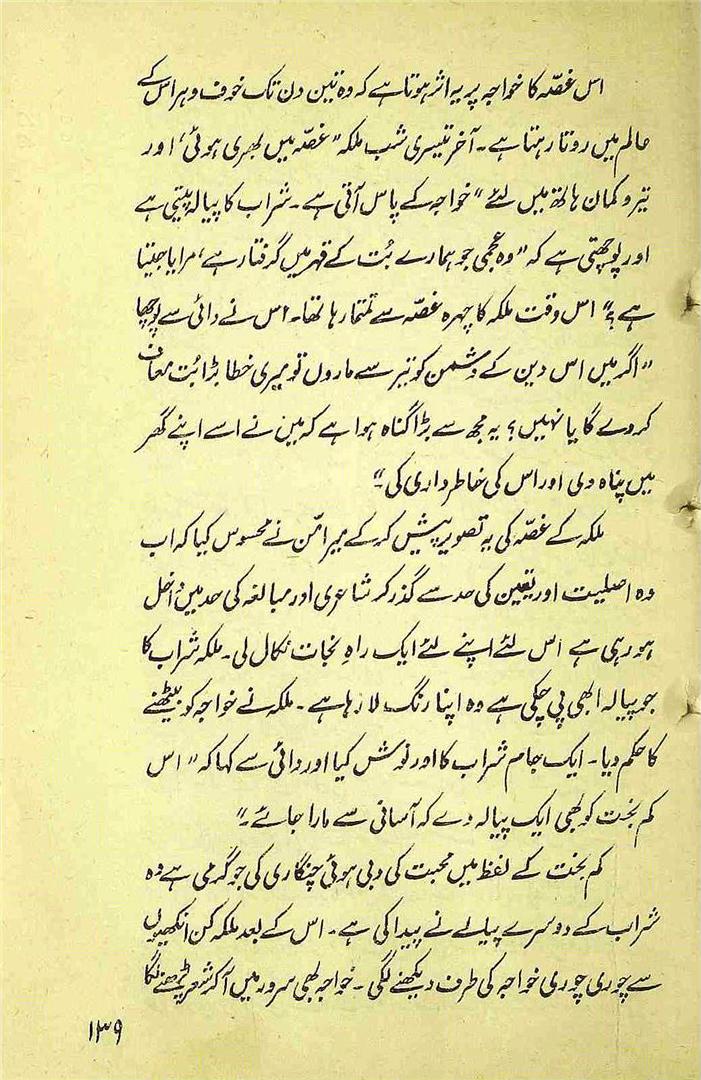 اس غصّہ کا خواجہ پر یہ اثر ہوتا ہے کہ وہ تین دن تک خوف و ہراس کے
عالم میں روتا رہتا ہے۔ آخر تیسری شب ملکہ ”غصّہ میں بھری ہوئی‘ اور
تیر و کمان ہاتھ میں لئے“ خواجہ کے پاس آتی ہے۔ شراب کا پیالہ پیتی ہے
اور پوچھتی ہے کہ ”وہ عجمی جو ہمارے بُت کے قہر میں گرفتار ہے‘ مرا یا جیتا
ہے؟“ اس وقت ملکہ کا چہرہ غصّہ سے تمتما رہا تھا۔ اس نے دائی سے پوچھا
”اگر میں اس دین کے دشمن کو تیر سے ماروں تو میری خطا بڑا بُت معاف
کر دے گا یا نہیں؟ یہ مجھ سے بڑا گناہ ہوا ہے کہ میں نے اسے اپنے گھر
میں پناہ دی اور اس کی خاطر داری کی۔“
ملکہ کے غصّہ کی یہ تصویر پیش کر کے میر امّن نے محسوس کیا کہ اب
وہ اصلیت اور یقین کی حد سے گذر کر شاعری اور مبالغہ کی حد میں داخل
ہو رہی ہے اس لئے اپنے لئے ایک راہِ نجات نکال لی۔ ملکہ شراب کا
جو پیالہ ابھی پی چکی ہے وہ اپنا رنگ لا رہا ہے۔ ملکہ نے خواجہ کو بیٹھنے
کا حکم دیا۔ ایک جام شراب کا اور نوش کیا اور دائی سے کہا کہ ”اس
کم بخت کو بھی ایک پیالہ دے کہ آسانی سے مارا جائے۔“
کم بخت کے لفظ میں محبت کی دبی ہوئی چنگاری کی جو گرمی ہے وہ
شراب کے دوسرے پیالے نے پیدا کی ہے۔ اس کے بعد ملکہ کن انکھیوں
سے چوری چوری خواجہ کی طرف دیکھنے لگی۔ خواجہ بھی سرور میں آ کر شعر پڑھنے لگا
۱۳۹